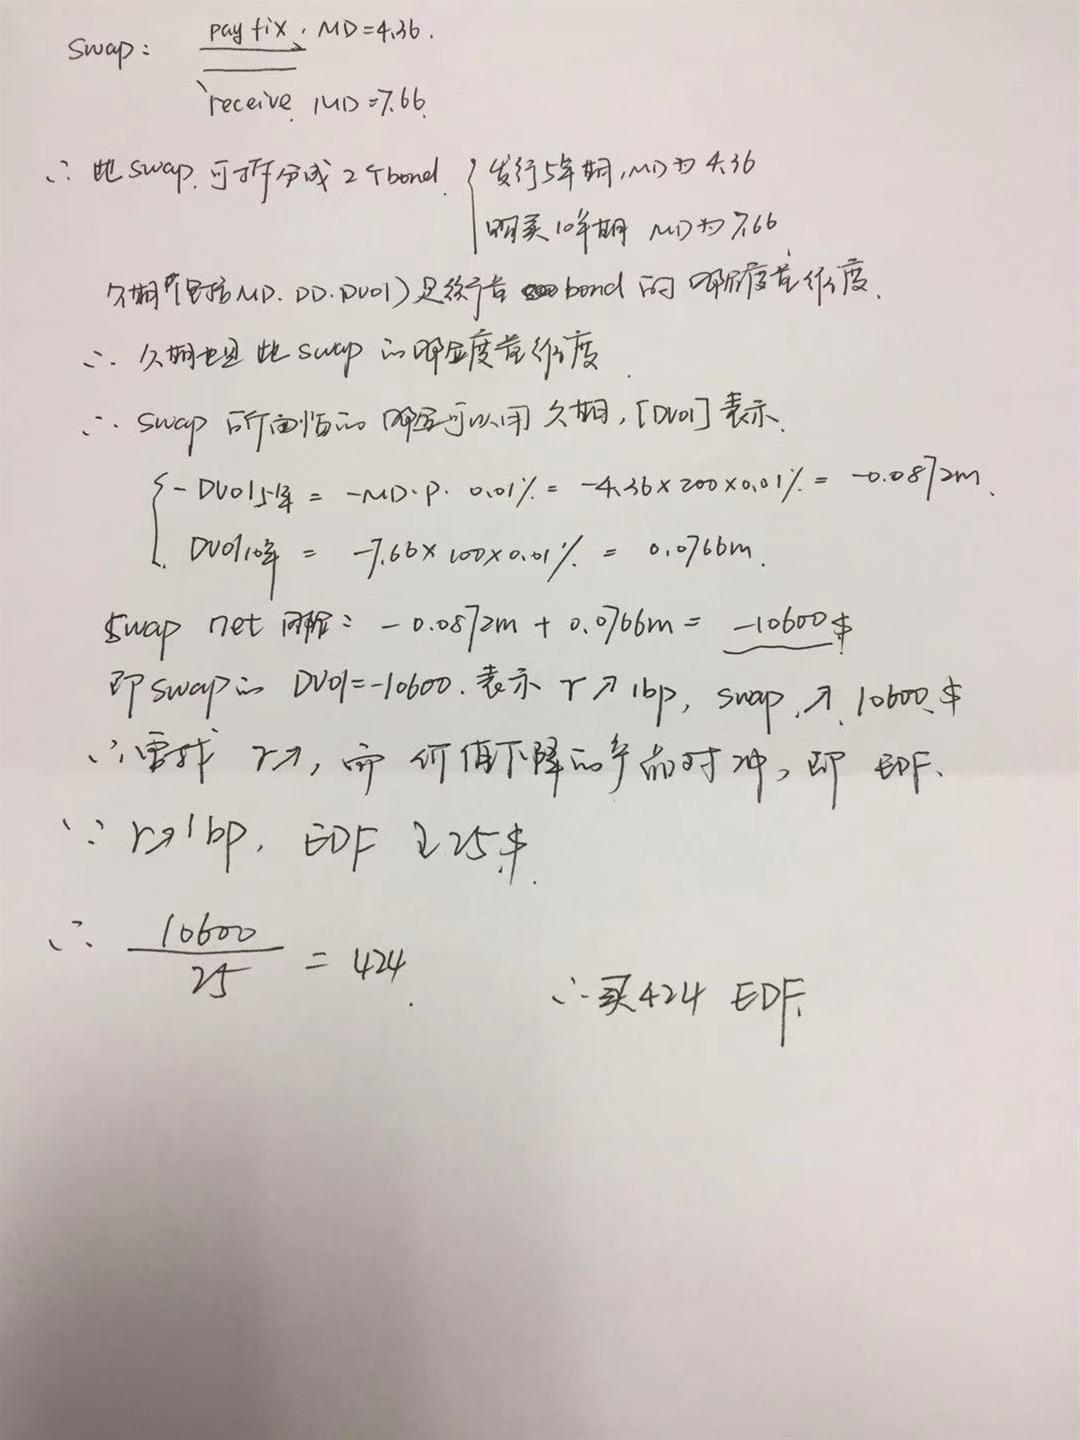 Swap: pay fix. MD=4.36.
receive MD=7.66.
∴ 此swap.可拆分成2个bond. { 发行5年期,MD为4.36
购买10年期 MD为7.66
久期(包括MD.DD.DV01)是衡量bond的风险度量维度.
∴ 久期也是此swap的风险度量维度.
∴ swap所面临的风险可以用久期,[DV01]表示.
{ -DV01 5年 = -MD·P· 0.01% = -4.36×200×0.01% = -0.0872m.
DV01 10年 = -7.66×100×0.01% = 0.0766m.
Swap net 风险: -0.0872m + 0.0766m = -10600$
即swap的 DV01=-10600.表示 r↗1bp, swap.↗.10600.$
∴需找 r↗,而价值下降的产品对冲,即 EDF.
∵ r↗1bp, EDF ↓25.$.
∴ 10600/25 = 424.
∴买424 EDF.